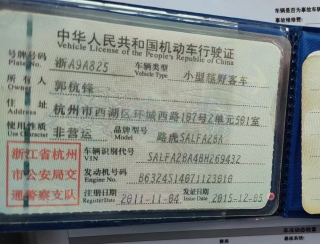 中华人民共和国机动车行驶证
Vehicle License of the People's Republic of China
号牌号码 浙A9A825 车辆类型 小型越野客车
Plate No. Vehicle Type
所有人 郭杭锋
Owner
住址 杭州市西湖区环城西路
Address
使用性质 非营运 品牌型号 路虎SALFA28A
Use Character Model
浙江省杭州
市公安局交
通警察支队
车辆识别代号 SALFA28A4BH269432
VIN
发动机号码
Engine No.
注册日期 2011-11-04 发证日期 2015-12-05
Register Date Issue Date